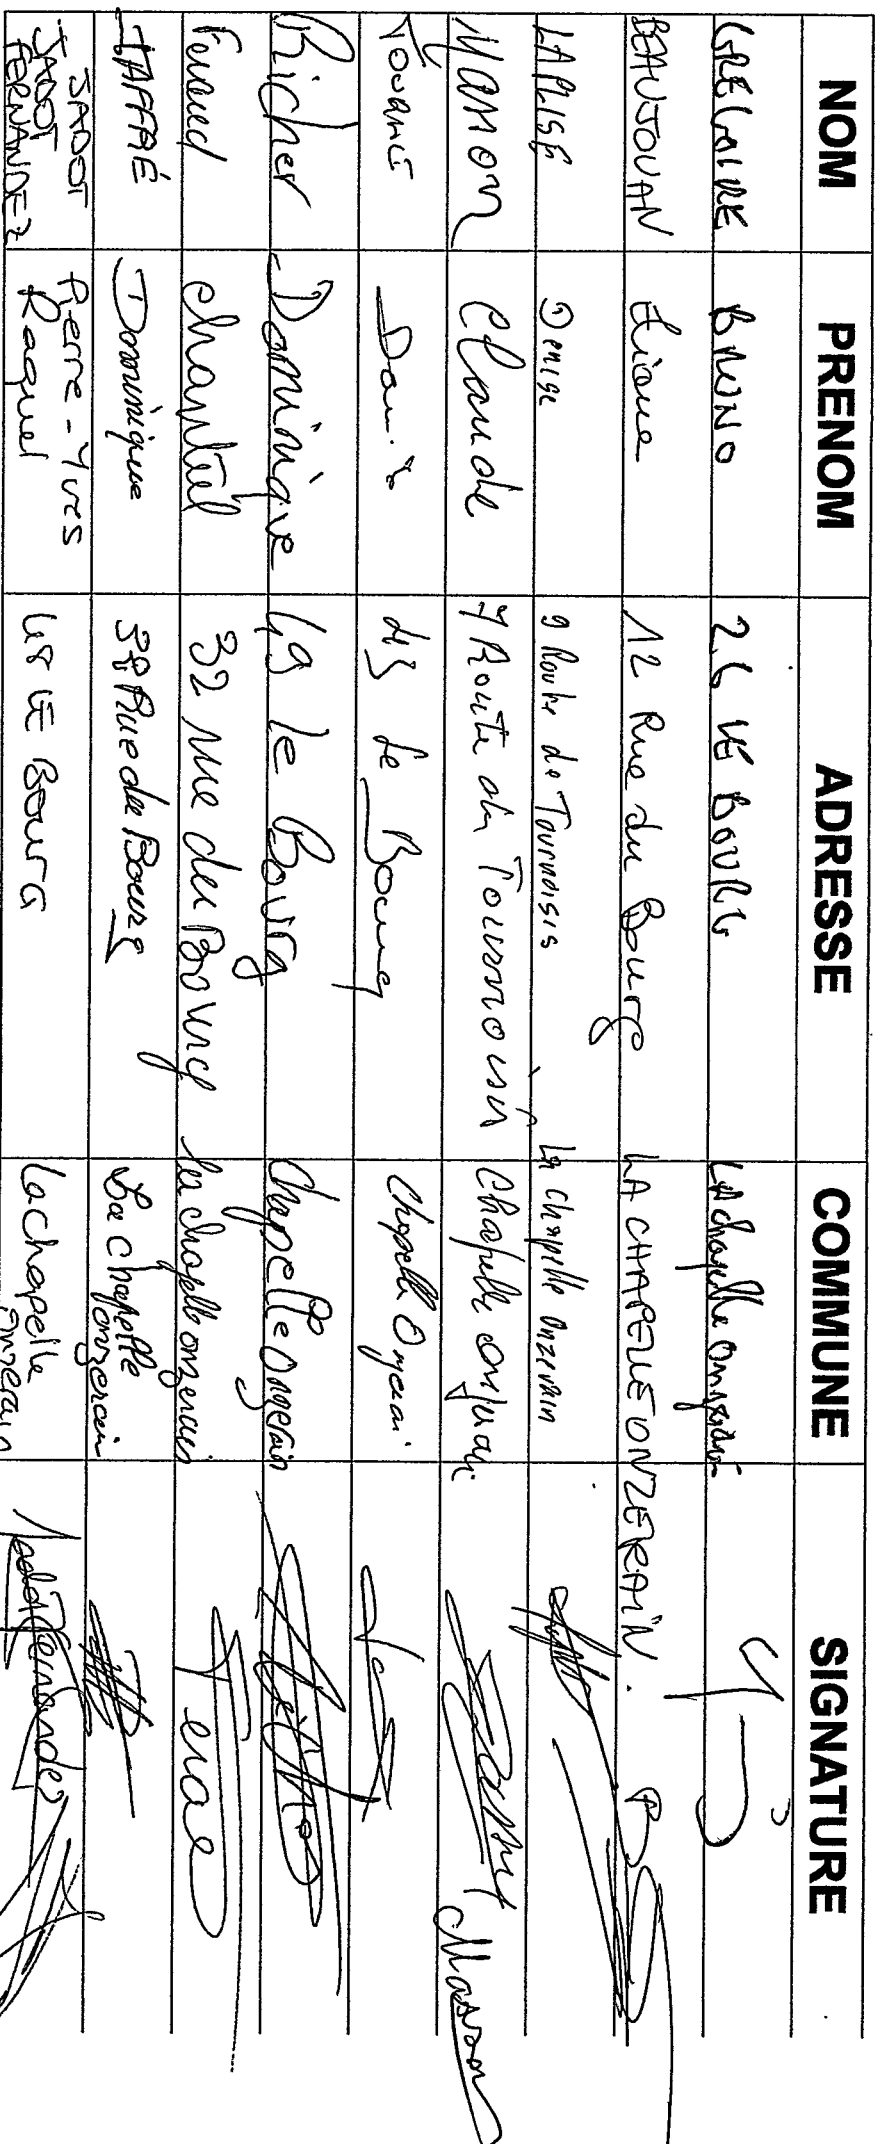 NOM PRENOM ADRESSE COMMUNE SIGNATURE
GREGOIRE BRUNO 26 LE BOURG LA chapelle Onzerain
BEAUJOUAN Liane 12 Rue du Bourg LA CHAPELLE ONZERAIN.
LALISE Denise 9 Route de Tournoisis La Chapelle Onzerain
Manon Claude 7 Route de Tournoisis Chapelle Onzerain
Denis 43 Le Bourg Chapelle Onzerain
Richer Dominique 49 le Bourg Chapelle Onzerain
Feraud chantal 32 rue du Bourg la chapelle onzerain
JAFFRÉ Dominique 38 Rue du Bourg La Chapelle onzerain
JADOT Pierre-Yves 48 LE BOURG La chapelle onzerain
JADOT FERNANDEZ Raquel